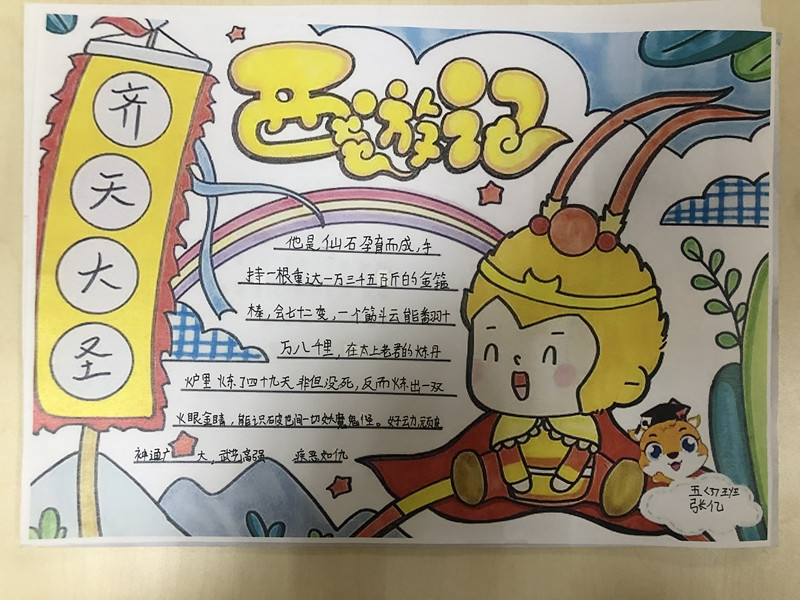 西游记
齐
天
大
圣
他是仙石孕育而成,手
持一根重达一万三千五百斤的金箍
棒,会七十二变,一个筋斗云能翻十
万八千里,在太上老君的炼丹
炉里炼了四十九天非但没死,反而炼出一双
火眼金睛,能识破世间一切妖魔鬼怪。好动顽皮
神通广大,武艺高强 疾恶如仇
张亿